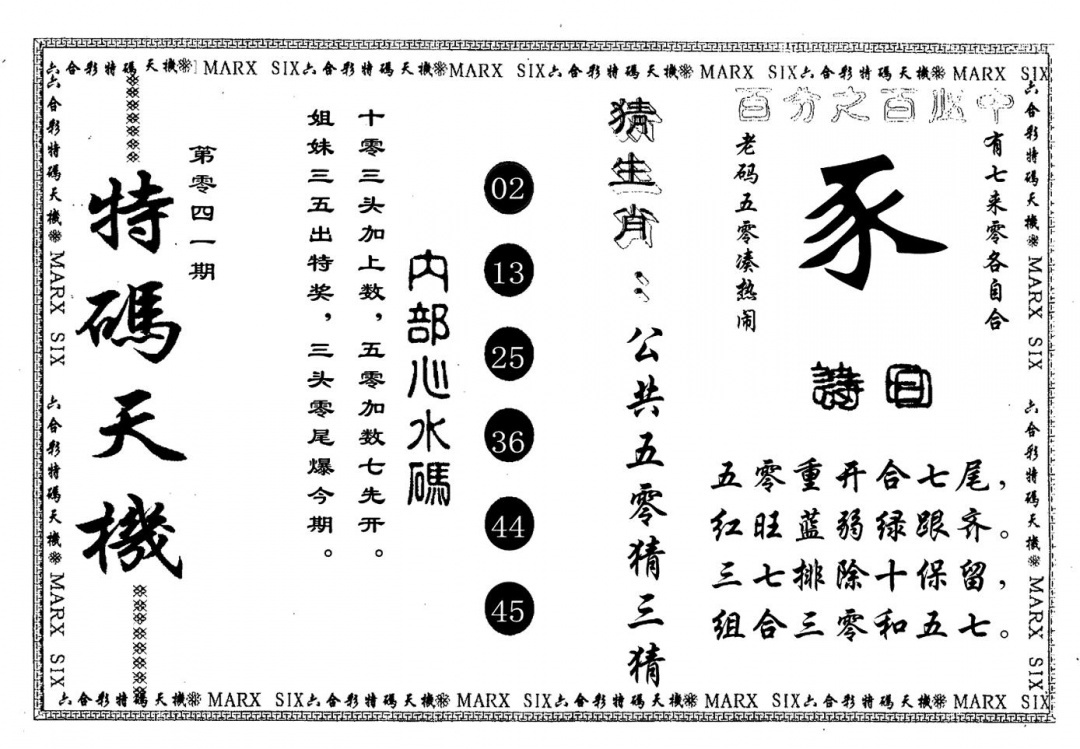 六合彩特碼天機 MARX SIX六合彩特碼天機MARX SIX六合彩特碼天機 MARX SIX六合彩特碼天機 MARX SIX
六合彩特碼天機 MARX SIX 六合彩特碼天機 MARX SIX
特碼天機
第零四一期
姐妹三五出特奖，三头零尾爆今期。
十零三头加上数，五零加数七先开。
内部心水碼
02
13
25
36
44
45
猜生肖：公共五零猜三猜
百分之百必中
老码五零凑热闹
豕
有七来零各自合
詩曰
五零重开合七尾，
红旺蓝弱绿跟齐。
三七排除十保留，
组合三零和五七。
六合彩特碼天機 MARX SIX 六合彩特碼天機 MARX SIX
六合彩特碼天機 MARX SIX六合彩特碼天機 MARX SIX六合彩特碼天機 MARX SIX六合彩特碼天機 MARX SIX